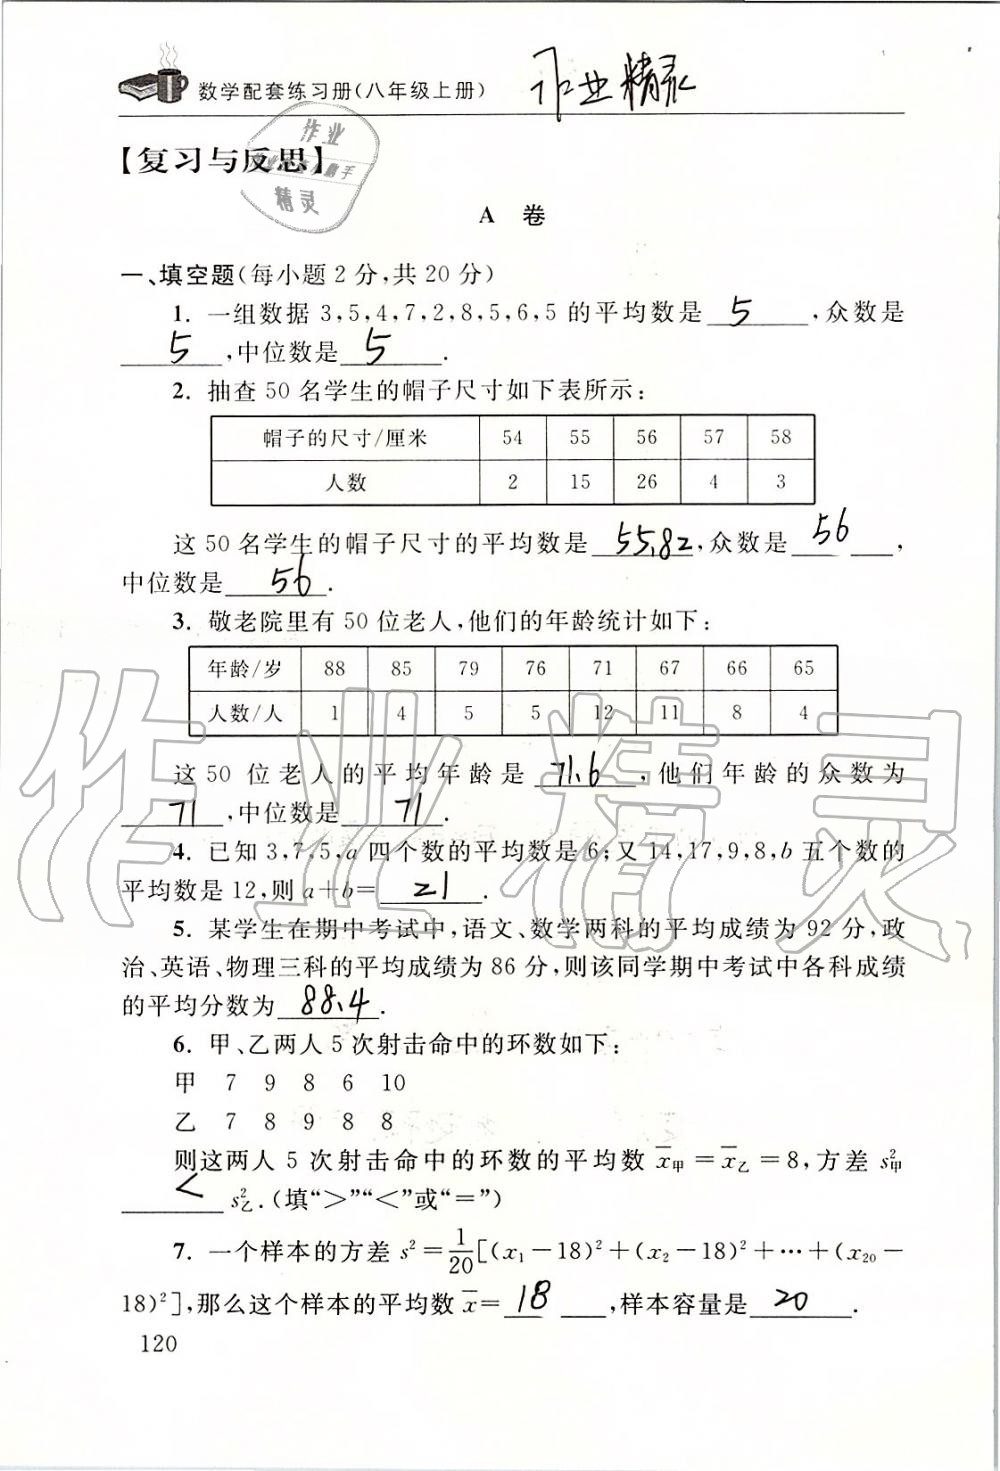 数学配套练习册(八年级上册)
作业精灵
【复习与反思】
作业
精灵
A 卷
一、填空题(每小题2分,共20分)
1. 一组数据3,5,4,7,2,8,5,6,5的平均数是 5 ,众数是
5 ,中位数是 5 .
2. 抽查50名学生的帽子尺寸如下表所示:
帽子的尺寸/厘米 54 55 56 57 58
人数 2 15 26 4 3
这50名学生的帽子尺寸的平均数是 55.82 ,众数是 56 ,
中位数是 56 .
3. 敬老院里有50位老人,他们的年龄统计如下:
年龄/岁 88 85 79 76 71 67 66 65
人数/人 1 4 5 5 12 11 8 4
这50位老人的平均年龄是 71.6 ,他们年龄的众数为
71 ,中位数是 71 .
4. 已知3,7,5,a四个数的平均数是6;又14,17,9,8,b五个数的
平均数是12,则a+b= 21 .
5. 某学生在期中考试中,语文、数学两科的平均成绩为92分,政
治、英语、物理三科的平均成绩为86分,则该同学期中考试中各科成绩
的平均分数为 88.4 .
6. 甲、乙两人5次射击命中的环数如下:
甲 7 9 8 6 10
乙 7 8 9 8 8
则这两人5次射击命中的环数的平均数x̄甲=x̄乙=8,方差s²甲
< s²乙.(填“>”“<”或“=”)
7. 一个样本的方差s²=1/20[(x₁-18)²+(x₂-18)²+…+(x₂₀-
18)²],那么这个样本的平均数x̄= 18 ,样本容量是 20 .
120
作业精灵